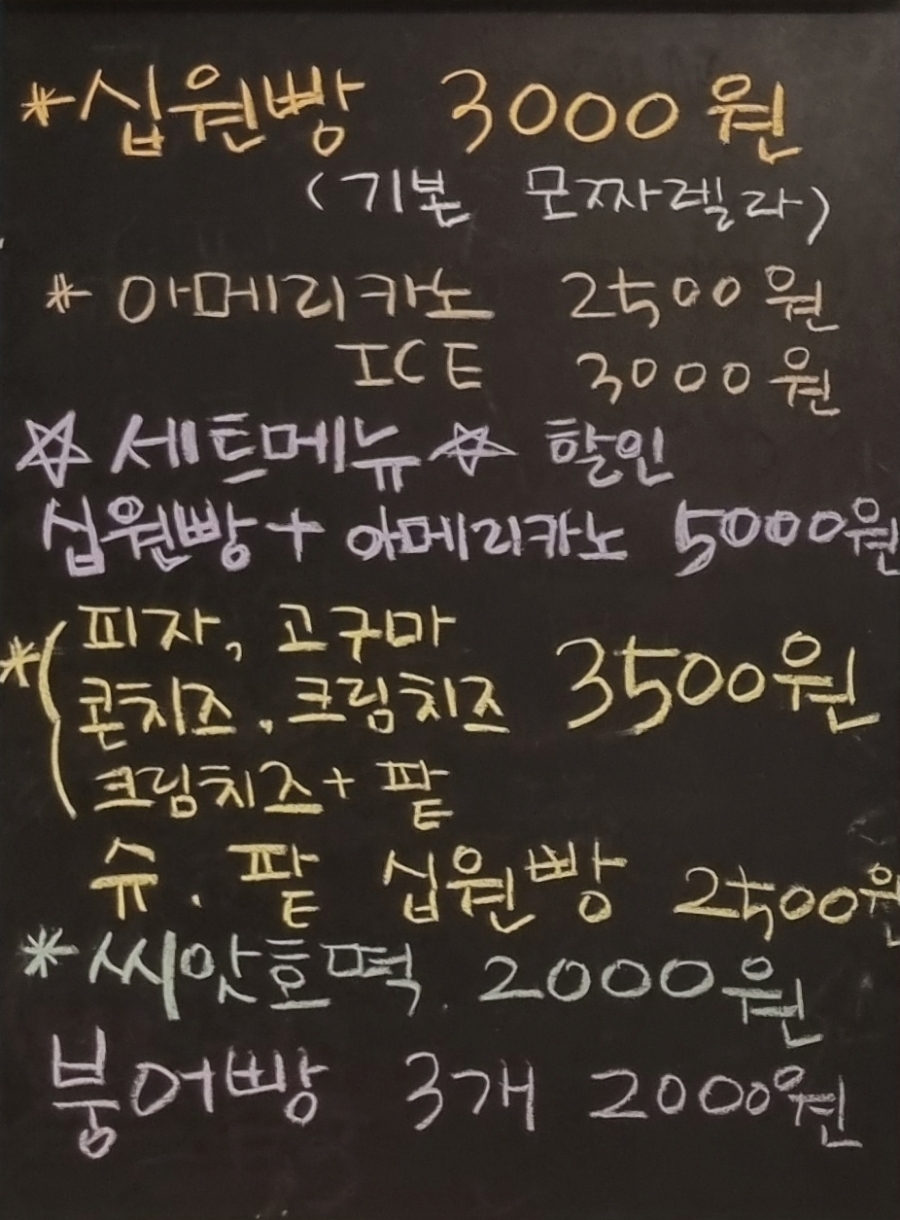 *십원빵 3000원
(기본 모짜렐라)
*아메리카노 2500원
ICE 3000원
☆세트메뉴☆ 할인
십원빵+아메리카노 5000원
*(피자, 고구마
콘치즈, 크림치즈 3500원
크림치즈+팥
슈. 팥 십원빵 2500원
*씨앗호떡. 2000원
붕어빵 3개 2000원